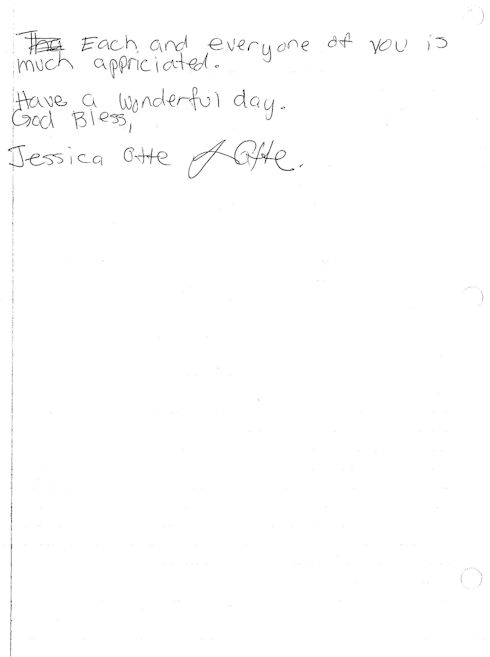 Each and everyone of you is
much appriciated.
Have a wonderful day.
God Bless,
Jessica Otte J Otte.